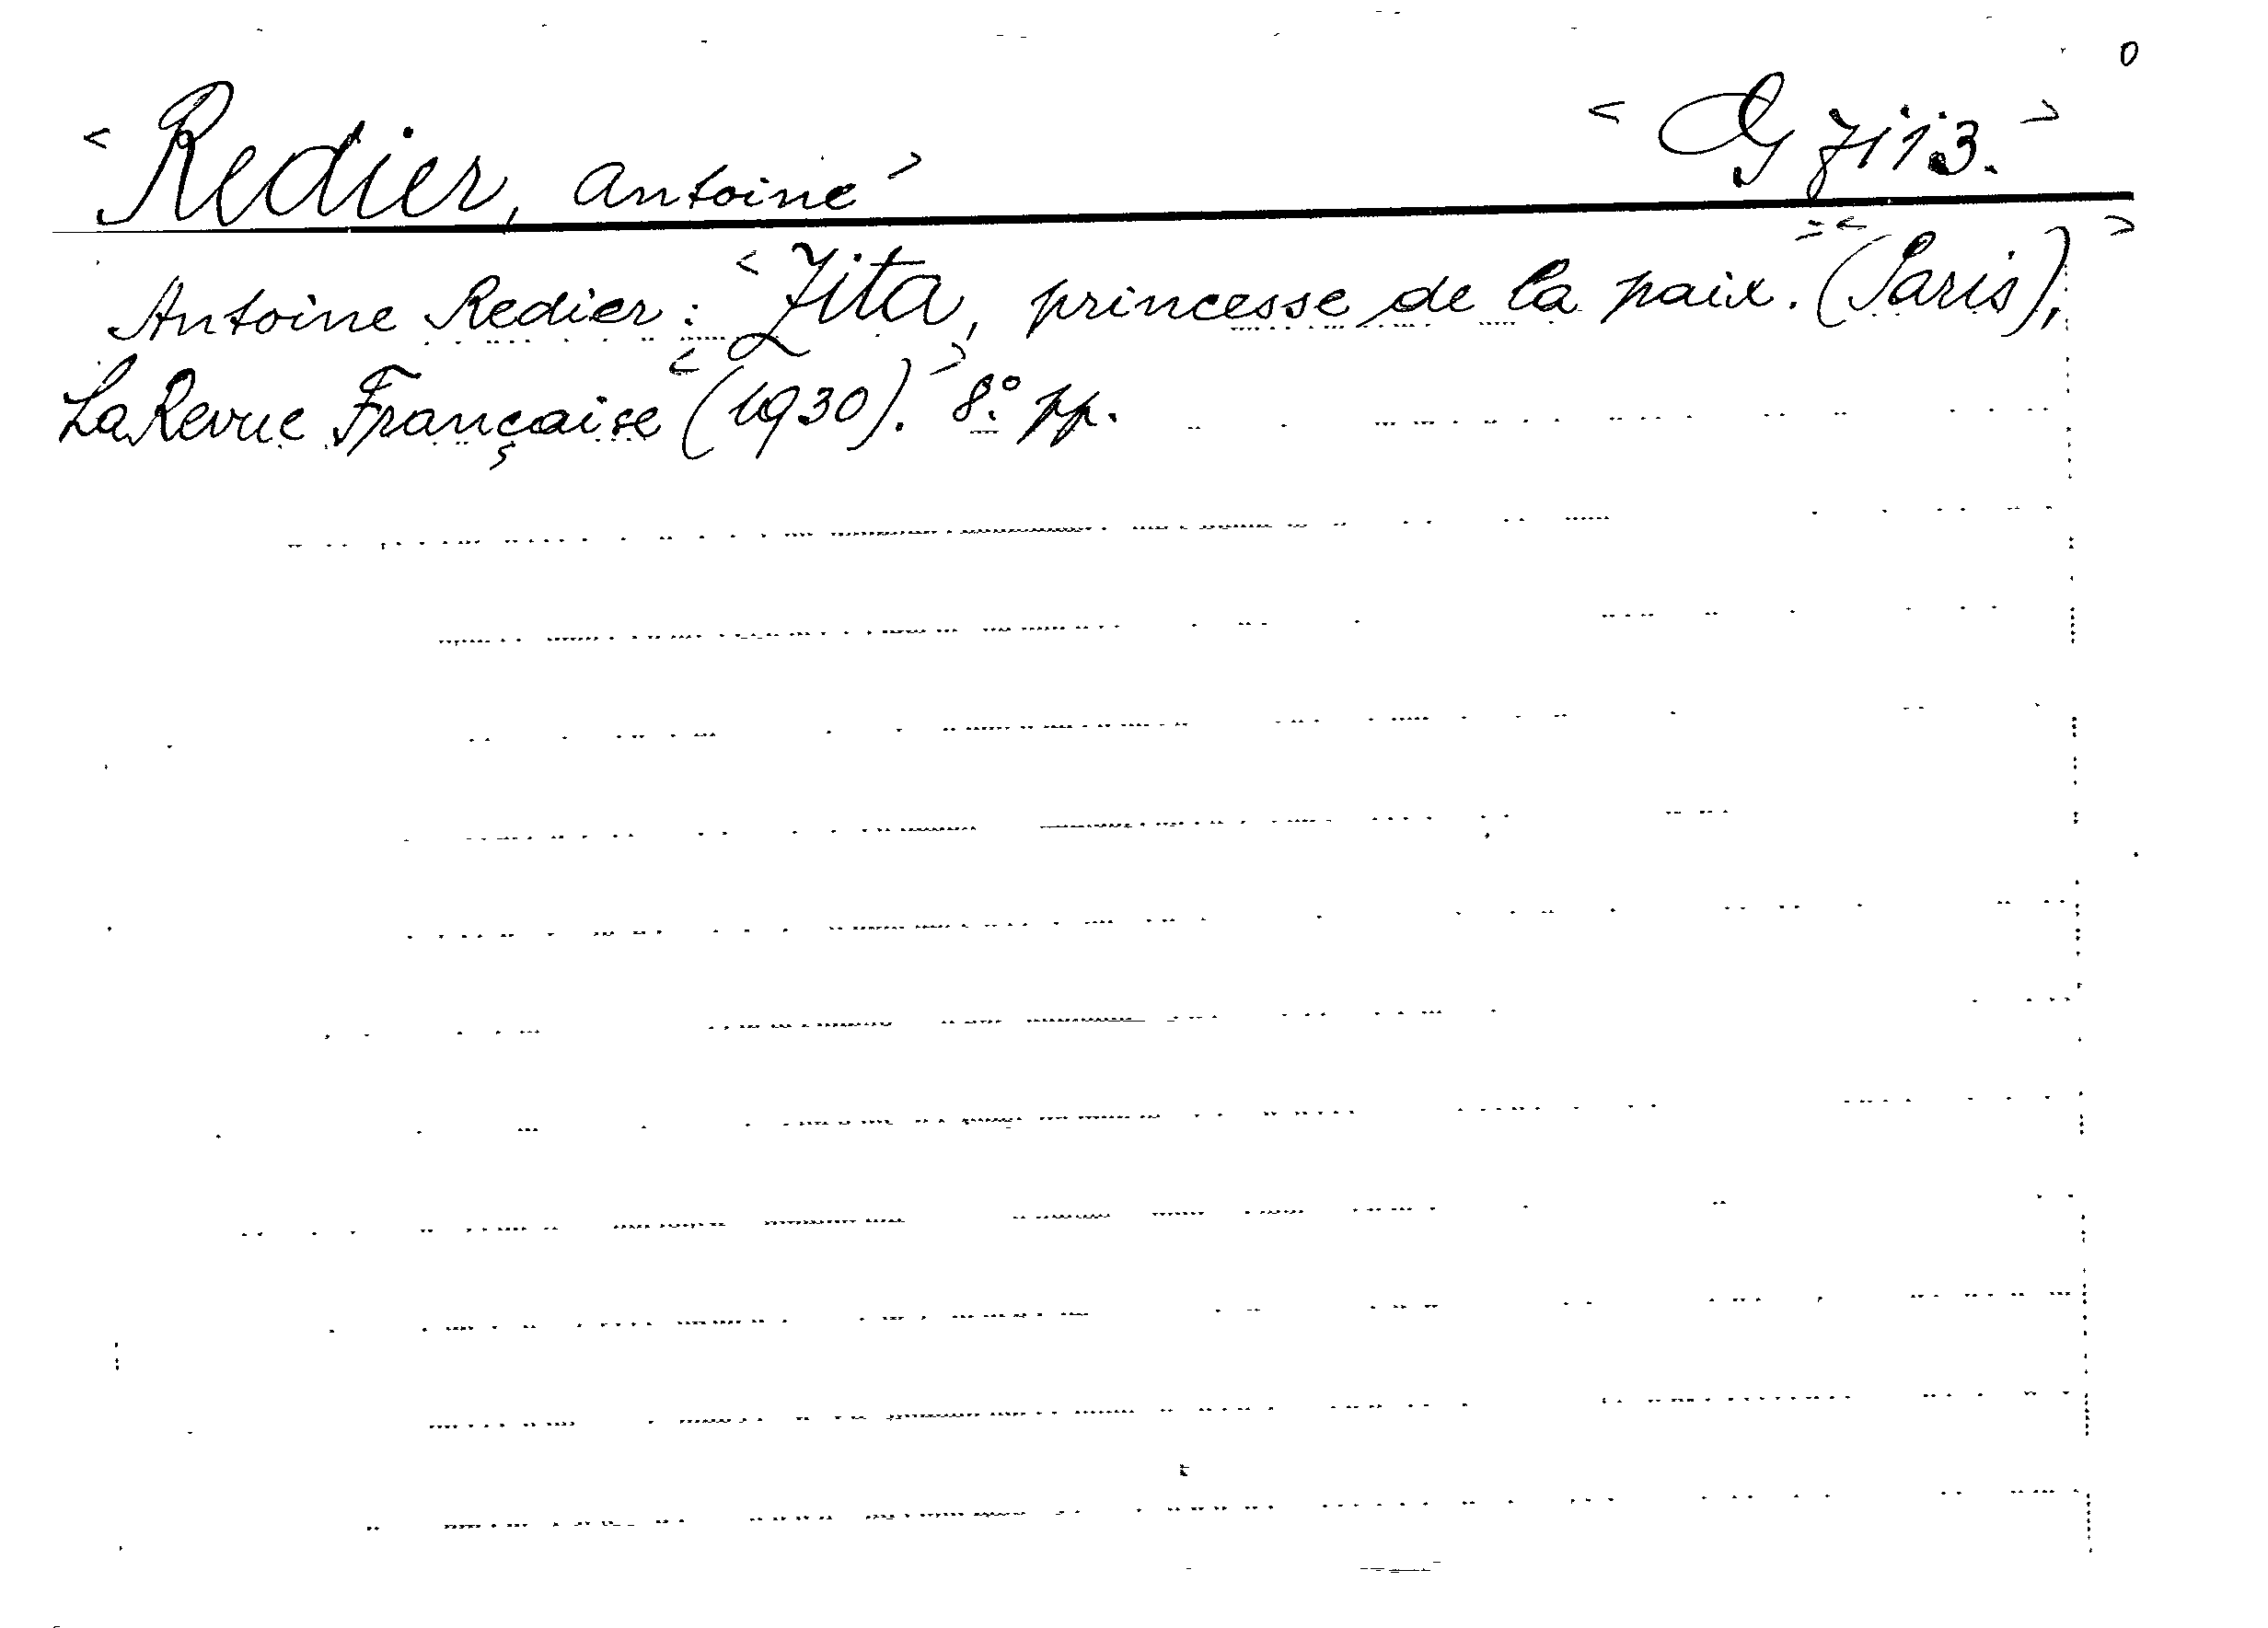 <Redier, Antoine> <Oy 7113.>
Antoine Redier: <Zita, princesse de la paix.=<(Paris),>
La Revue Française <(1930).> 8º pp.